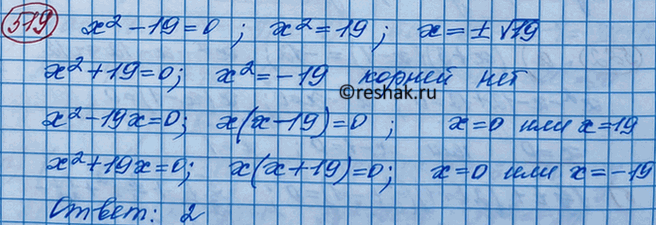 519 x² - 19 = 0 ; x² = 19 ; x = ± √19
x² + 19 = 0; x² = -19 корней нет
©reshak.ru
x² - 19x = 0; x(x - 19) = 0 ; x = 0 или x = 19
x² + 19x = 0; x(x + 19) = 0; x = 0 или x = -19
Ответ: 2